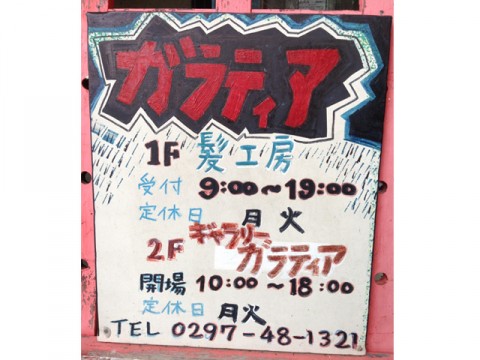 ガラティア
1F 髪工房
受付 9:00～19:00
定休日 月 火
2F ギャラリー
ガラティア
開場 10:00～18:00
定休日 月火
TEL 0297-48-1321